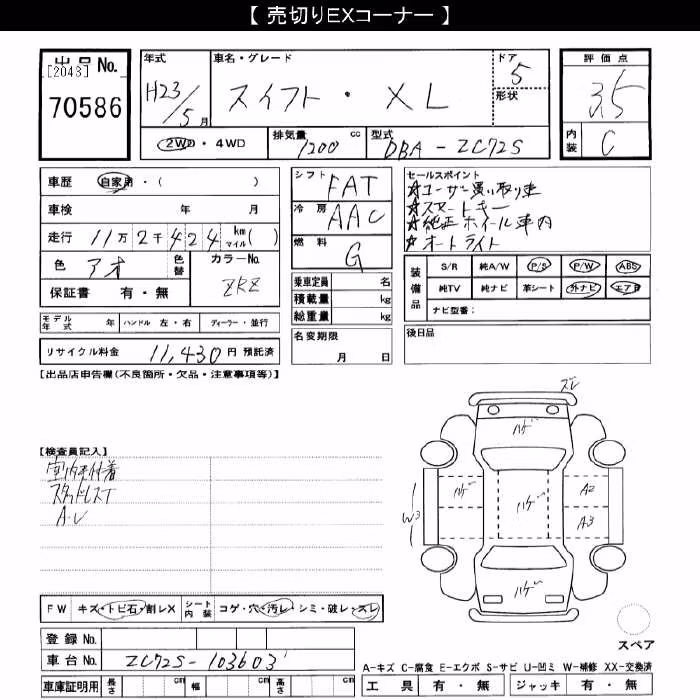 【 売切りEXコーナー 】
出品 No.
[2043]
70586
年式
H23/5月
車名・グレード
スイフト・XL
ドア
5
形状
2WD・4WD
排気量 1200 cc
型式 DBA-ZC72S
評価点
3.5
内装 C
車歴 自家用・( )
車検 年 月
走行 11万2千424 km マイル( )
色 アオ 色替
カラーNo. ZRZ
保証書 有・無
シフト FAT
冷房 AAC
燃料 G
乗車定員 名
積載量 kg
総重量 kg
名変期限
月 日
セールスポイント
☆ユーザー買い取り車
☆スマートキー
☆純正ホイール車内
☆オートライト
装備品
S/R 純A/W P/S P/W ABS
純TV 純ナビ 革シート 外ナビ エアB
ナビ型番:
後日品
モデル年式 年 ハンドル 左・右 ディーラー・並行
リサイクル料金 11,430円 預託済
【出品店申告欄(不良箇所・欠品・注意事項等)】
【検査員記入】
室内床付着
スタッドレスT
A・U
ズレ
ハゲ
ハゲ
ハゲ
ハゲ
W3
A2
A3
FW キズ・トビ石・割レX
シート内装 コゲ・穴・汚レ・シミ・破レ・スレ
登録 No.
車台 No. ZC72S-103603
車庫証明用 長さ cm 幅 cm 高さ cm
スペア
A-キズ C-腐食 E-エクボ S-サビ U-凹ミ W-補修 XX-交換済
工具 有・無 ジャッキ 有・無